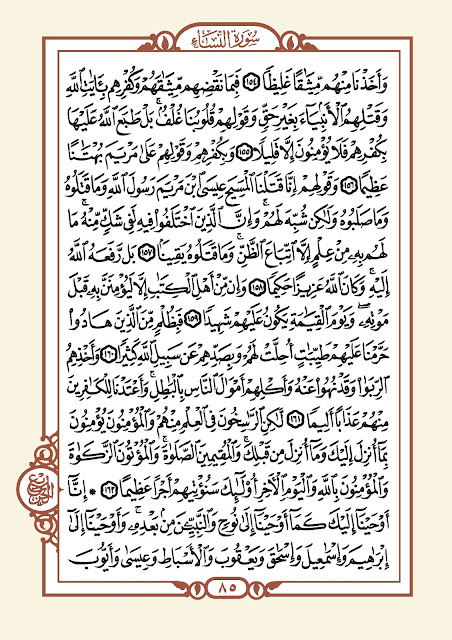 سُورَةُ النِّسَاءِ
وَأَخَذْنَا مِنْهُم مِّيثَٰقًا غَلِيظًا ١٥٤ فَبِمَا نَقْضِهِم مِّيثَٰقَهُمْ وَكُفْرِهِم بِـَٔايَٰتِ ٱللَّهِ
وَقَتْلِهِمُ ٱلْأَنۢبِيَآءَ بِغَيْرِ حَقٍّ وَقَوْلِهِمْ قُلُوبُنَا غُلْفٌۢ ۚ بَلْ طَبَعَ ٱللَّهُ عَلَيْهَا
بِكُفْرِهِمْ فَلَا يُؤْمِنُونَ إِلَّا قَلِيلًا ١٥٥ وَبِكُفْرِهِمْ وَقَوْلِهِمْ عَلَىٰ مَرْيَمَ بُهْتَٰنًا
عَظِيمًا ١٥٦ وَقَوْلِهِمْ إِنَّا قَتَلْنَا ٱلْمَسِيحَ عِيسَى ٱبْنَ مَرْيَمَ رَسُولَ ٱللَّهِ وَمَا قَتَلُوهُ
وَمَا صَلَبُوهُ وَلَٰكِن شُبِّهَ لَهُمْ ۚ وَإِنَّ ٱلَّذِينَ ٱخْتَلَفُوا۟ فِيهِ لَفِى شَكٍّ مِّنْهُ ۚ مَا
لَهُم بِهِۦ مِنْ عِلْمٍ إِلَّا ٱتِّبَاعَ ٱلظَّنِّ ۚ وَمَا قَتَلُوهُ يَقِينًۢا ١٥٧ بَل رَّفَعَهُ ٱللَّهُ
إِلَيْهِ ۚ وَكَانَ ٱللَّهُ عَزِيزًا حَكِيمًا ١٥٨ وَإِن مِّنْ أَهْلِ ٱلْكِتَٰبِ إِلَّا لَيُؤْمِنَنَّ بِهِۦ قَبْلَ
مَوْتِهِۦ ۖ وَيَوْمَ ٱلْقِيَٰمَةِ يَكُونُ عَلَيْهِمْ شَهِيدًا ١٥٩ فَبِظُلْمٍ مِّنَ ٱلَّذِينَ هَادُوا۟
حَرَّمْنَا عَلَيْهِمْ طَيِّبَٰتٍ أُحِلَّتْ لَهُمْ وَبِصَدِّهِمْ عَن سَبِيلِ ٱللَّهِ كَثِيرًا ١٦٠ وَأَخْذِهِمُ
ٱلرِّبَوٰا۟ وَقَدْ نُهُوا۟ عَنْهُ وَأَكْلِهِمْ أَمْوَٰلَ ٱلنَّاسِ بِٱلْبَٰطِلِ ۚ وَأَعْتَدْنَا لِلْكَٰفِرِينَ
مِنْهُمْ عَذَابًا أَلِيمًا ١٦١ لَّٰكِنِ ٱلرَّٰسِخُونَ فِى ٱلْعِلْمِ مِنْهُمْ وَٱلْمُؤْمِنُونَ يُؤْمِنُونَ
بِمَآ أُنزِلَ إِلَيْكَ وَمَآ أُنزِلَ مِن قَبْلِكَ ۚ وَٱلْمُقِيمِينَ ٱلصَّلَوٰةَ ۚ وَٱلْمُؤْتُونَ ٱلزَّكَوٰةَ
وَٱلْمُؤْمِنُونَ بِٱللَّهِ وَٱلْيَوْمِ ٱلْءَاخِرِ أُو۟لَٰٓئِكَ سَنُؤْتِيهِمْ أَجْرًا عَظِيمًا ١٦٢ * إِنَّآ
أَوْحَيْنَآ إِلَيْكَ كَمَآ أَوْحَيْنَآ إِلَىٰ نُوحٍ وَٱلنَّبِيِّـۧنَ مِنۢ بَعْدِهِۦ ۚ وَأَوْحَيْنَآ إِلَىٰٓ
إِبْرَٰهِيمَ وَإِسْمَٰعِيلَ وَإِسْحَٰقَ وَيَعْقُوبَ وَٱلْأَسْبَاطِ وَعِيسَىٰ وَأَيُّوبَ
٨٥